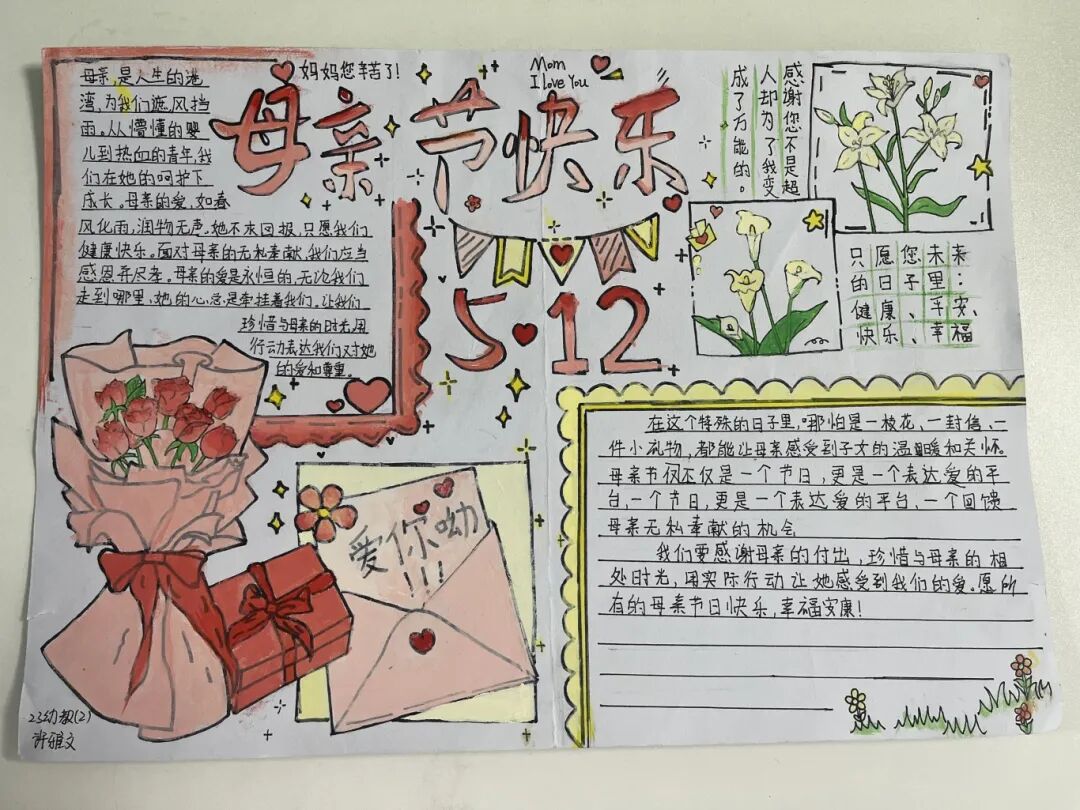 母亲,是人生的港
湾,为我们遮风挡
雨。从懵懂的婴
儿到热血的青年,我
们在她的呵护下
成长。母亲的爱,如春
风化雨,润物无声,她不求回报,只愿我们
健康快乐。面对母亲的无私奉献,我们应当
感恩并尽孝。母亲的爱是永恒的,无论我们
走到哪里,她的心总是牵挂着我们。让我们
珍惜与母亲的时光,用
行动表达我们对她
的爱和尊重。
妈妈您辛苦了!
母亲节快乐
Mom
I love You
5 12
感谢您不是超
人却为了我变
成了万能的。
只愿您未来
的日子里:
健康、平安、
快乐、幸福
爱你呦
!!!
在这个特殊的日子里,哪怕是一枝花、一封信、一
件小礼物,都能让母亲感受到子女的温暖和关怀。
母亲节仅不仅是一个节日,更是一个表达爱的平
台,一个节日,更是一个表达爱的平台,一个回馈
母亲无私奉献的机会
我们要感谢母亲的付出,珍惜与母亲的相
处时光,用实际行动让她感受到我们的爱。愿所
有的母亲节日快乐,幸福安康!
23幼教(2)
许雅文